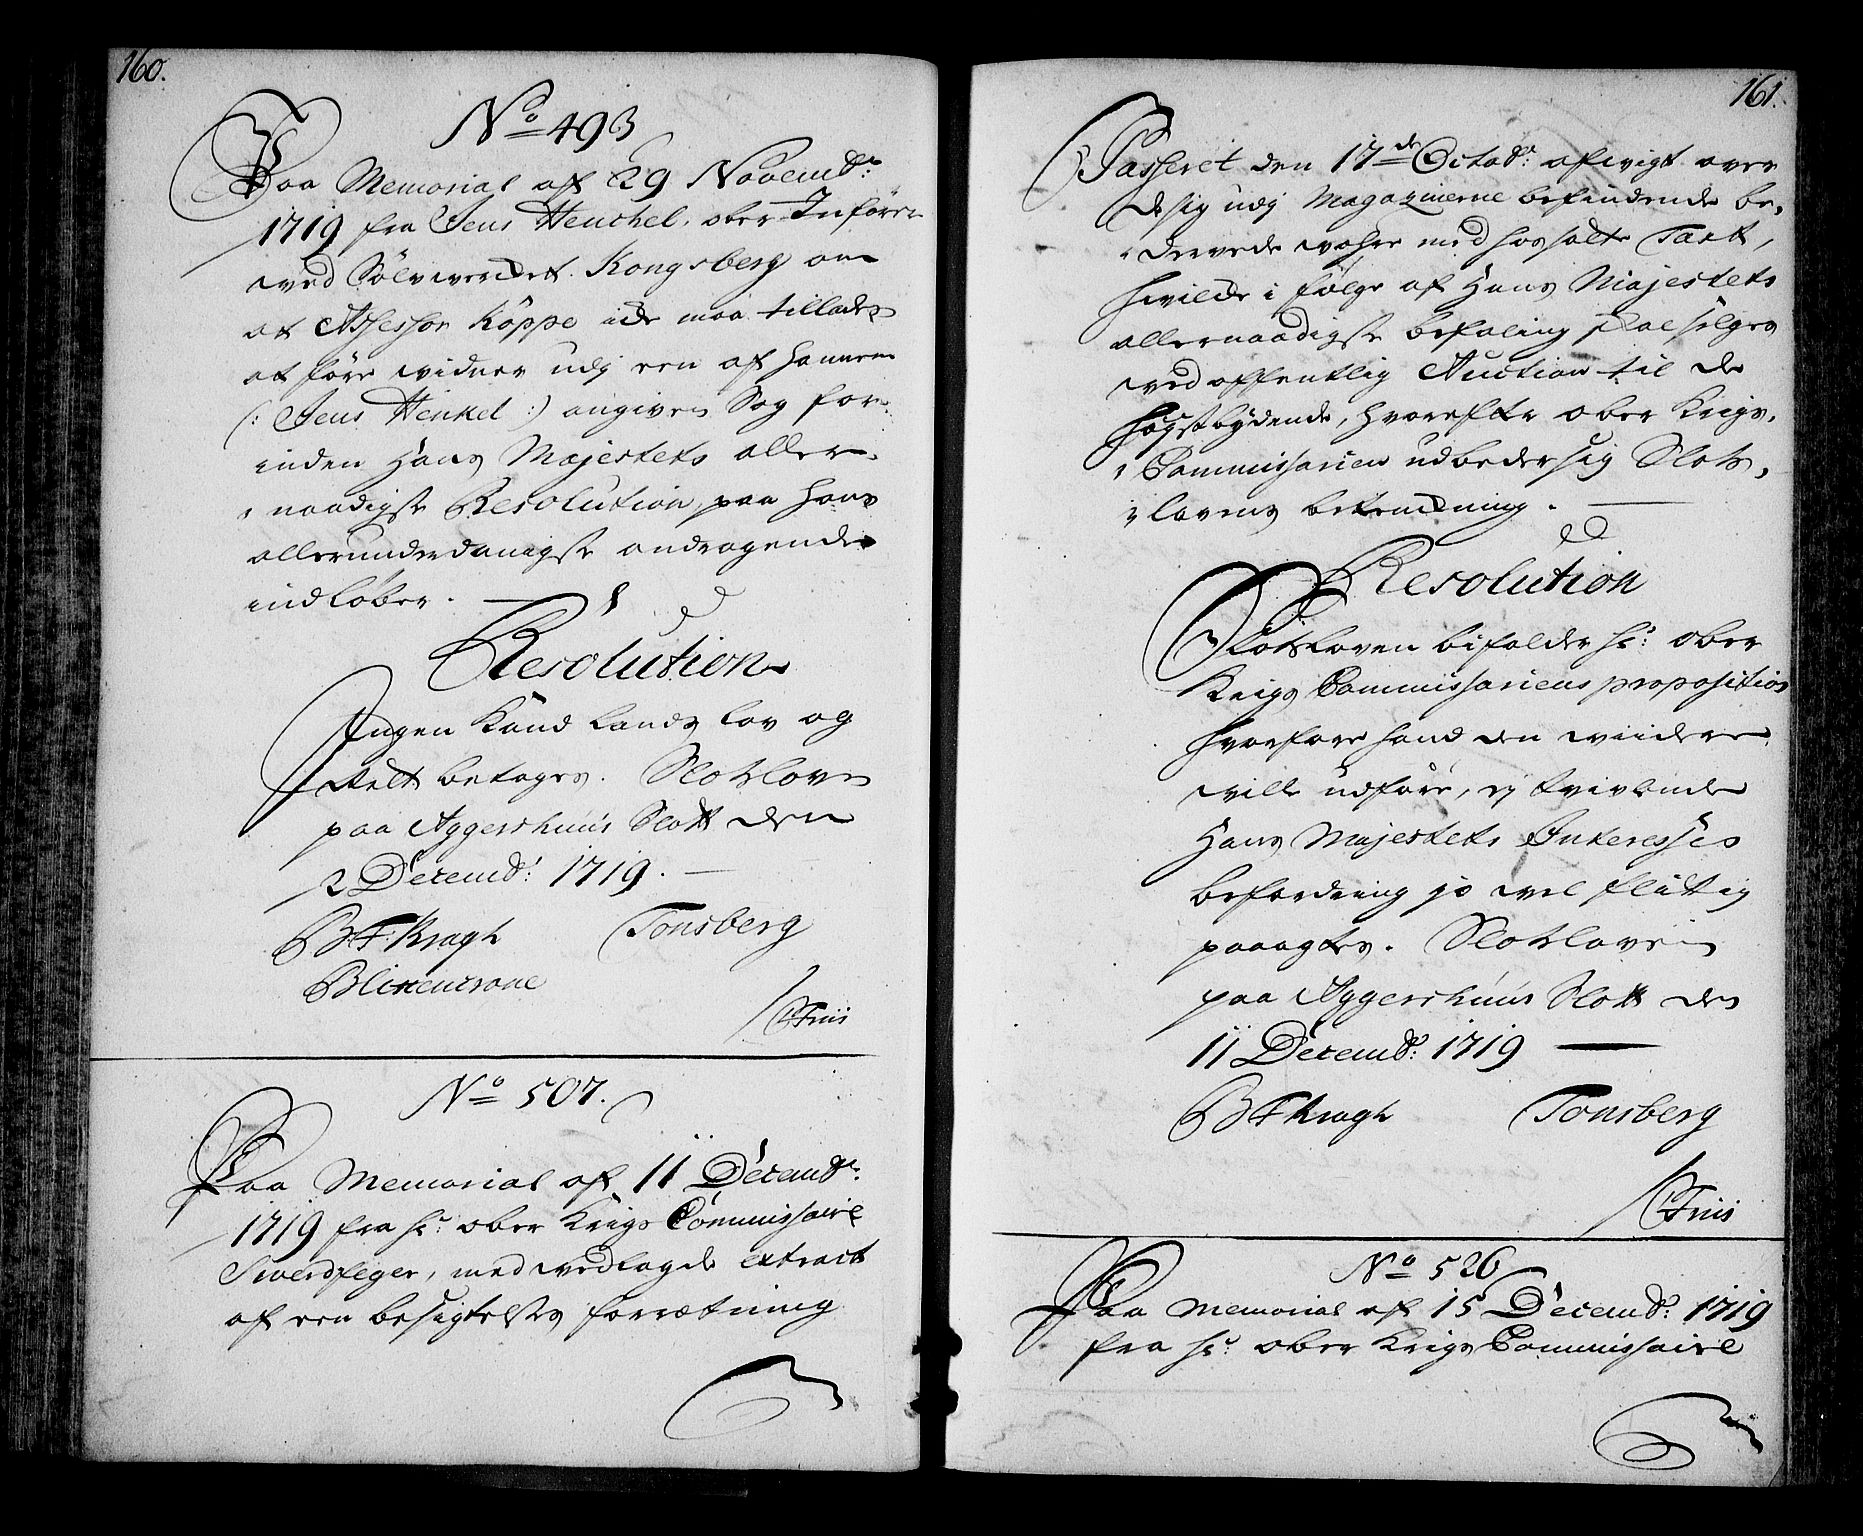 160.
No 493
Paa Memorial af 29 Novembr:
1719 fra Jens Henchel, ober-Införer
ved Sölvverchet Kongsberg om
at Assessor Köppe icke maa tillades
at före vidner udj een af hannem
(: Jens Henkel :) angiven Sag for-
inden Hans Majestets aller-
naadigste Resolution paa hans
allerunderdanigste andragende
indlöber.
Resolution
Ingen Kand Lands Lov og
Rett betages. Slotsloven
paa Aggershuus Slott den
2 Decembr: 1719.
BF. Kragh Tonsberg
Blixencrone
Friis
No 507.
Paa Memorial af 11 Decembr:
1719 fra Hr: ober Krigs Commissaire
Swerdfeger, med vedlagde extract
af een besigtelses forrætning
161.
Passeret den 17de Octobr: afvigt over
de sig udj Magazinerne befindende be-
dervede wahre med hossatte Taxt,
hvilcke i fölge af Hans Majestets
allernaadigste befaling skal sælges
ved offentlig Auction til de
högstbydende, hvorefter ober Krigs-
Commissarien udbeder sig Slots-
lovens betenckning.
Resolution
Slotsloven bifalder Hr: ober
Krigs Commissariens proposition
hvorfore hand den viidere
ville udföre, ey tvivlende
Hans Majestets Interesses
befordring jo vel flittig
paaagtes. Slotsloven
paa Aggershuus Slott den
11 Decembr: 1719
BF Kragh Tonsberg
Friis
No 526
Paa Memorial af 15 Decembr: 1719
fra Hr: ober Krigs Commissaire